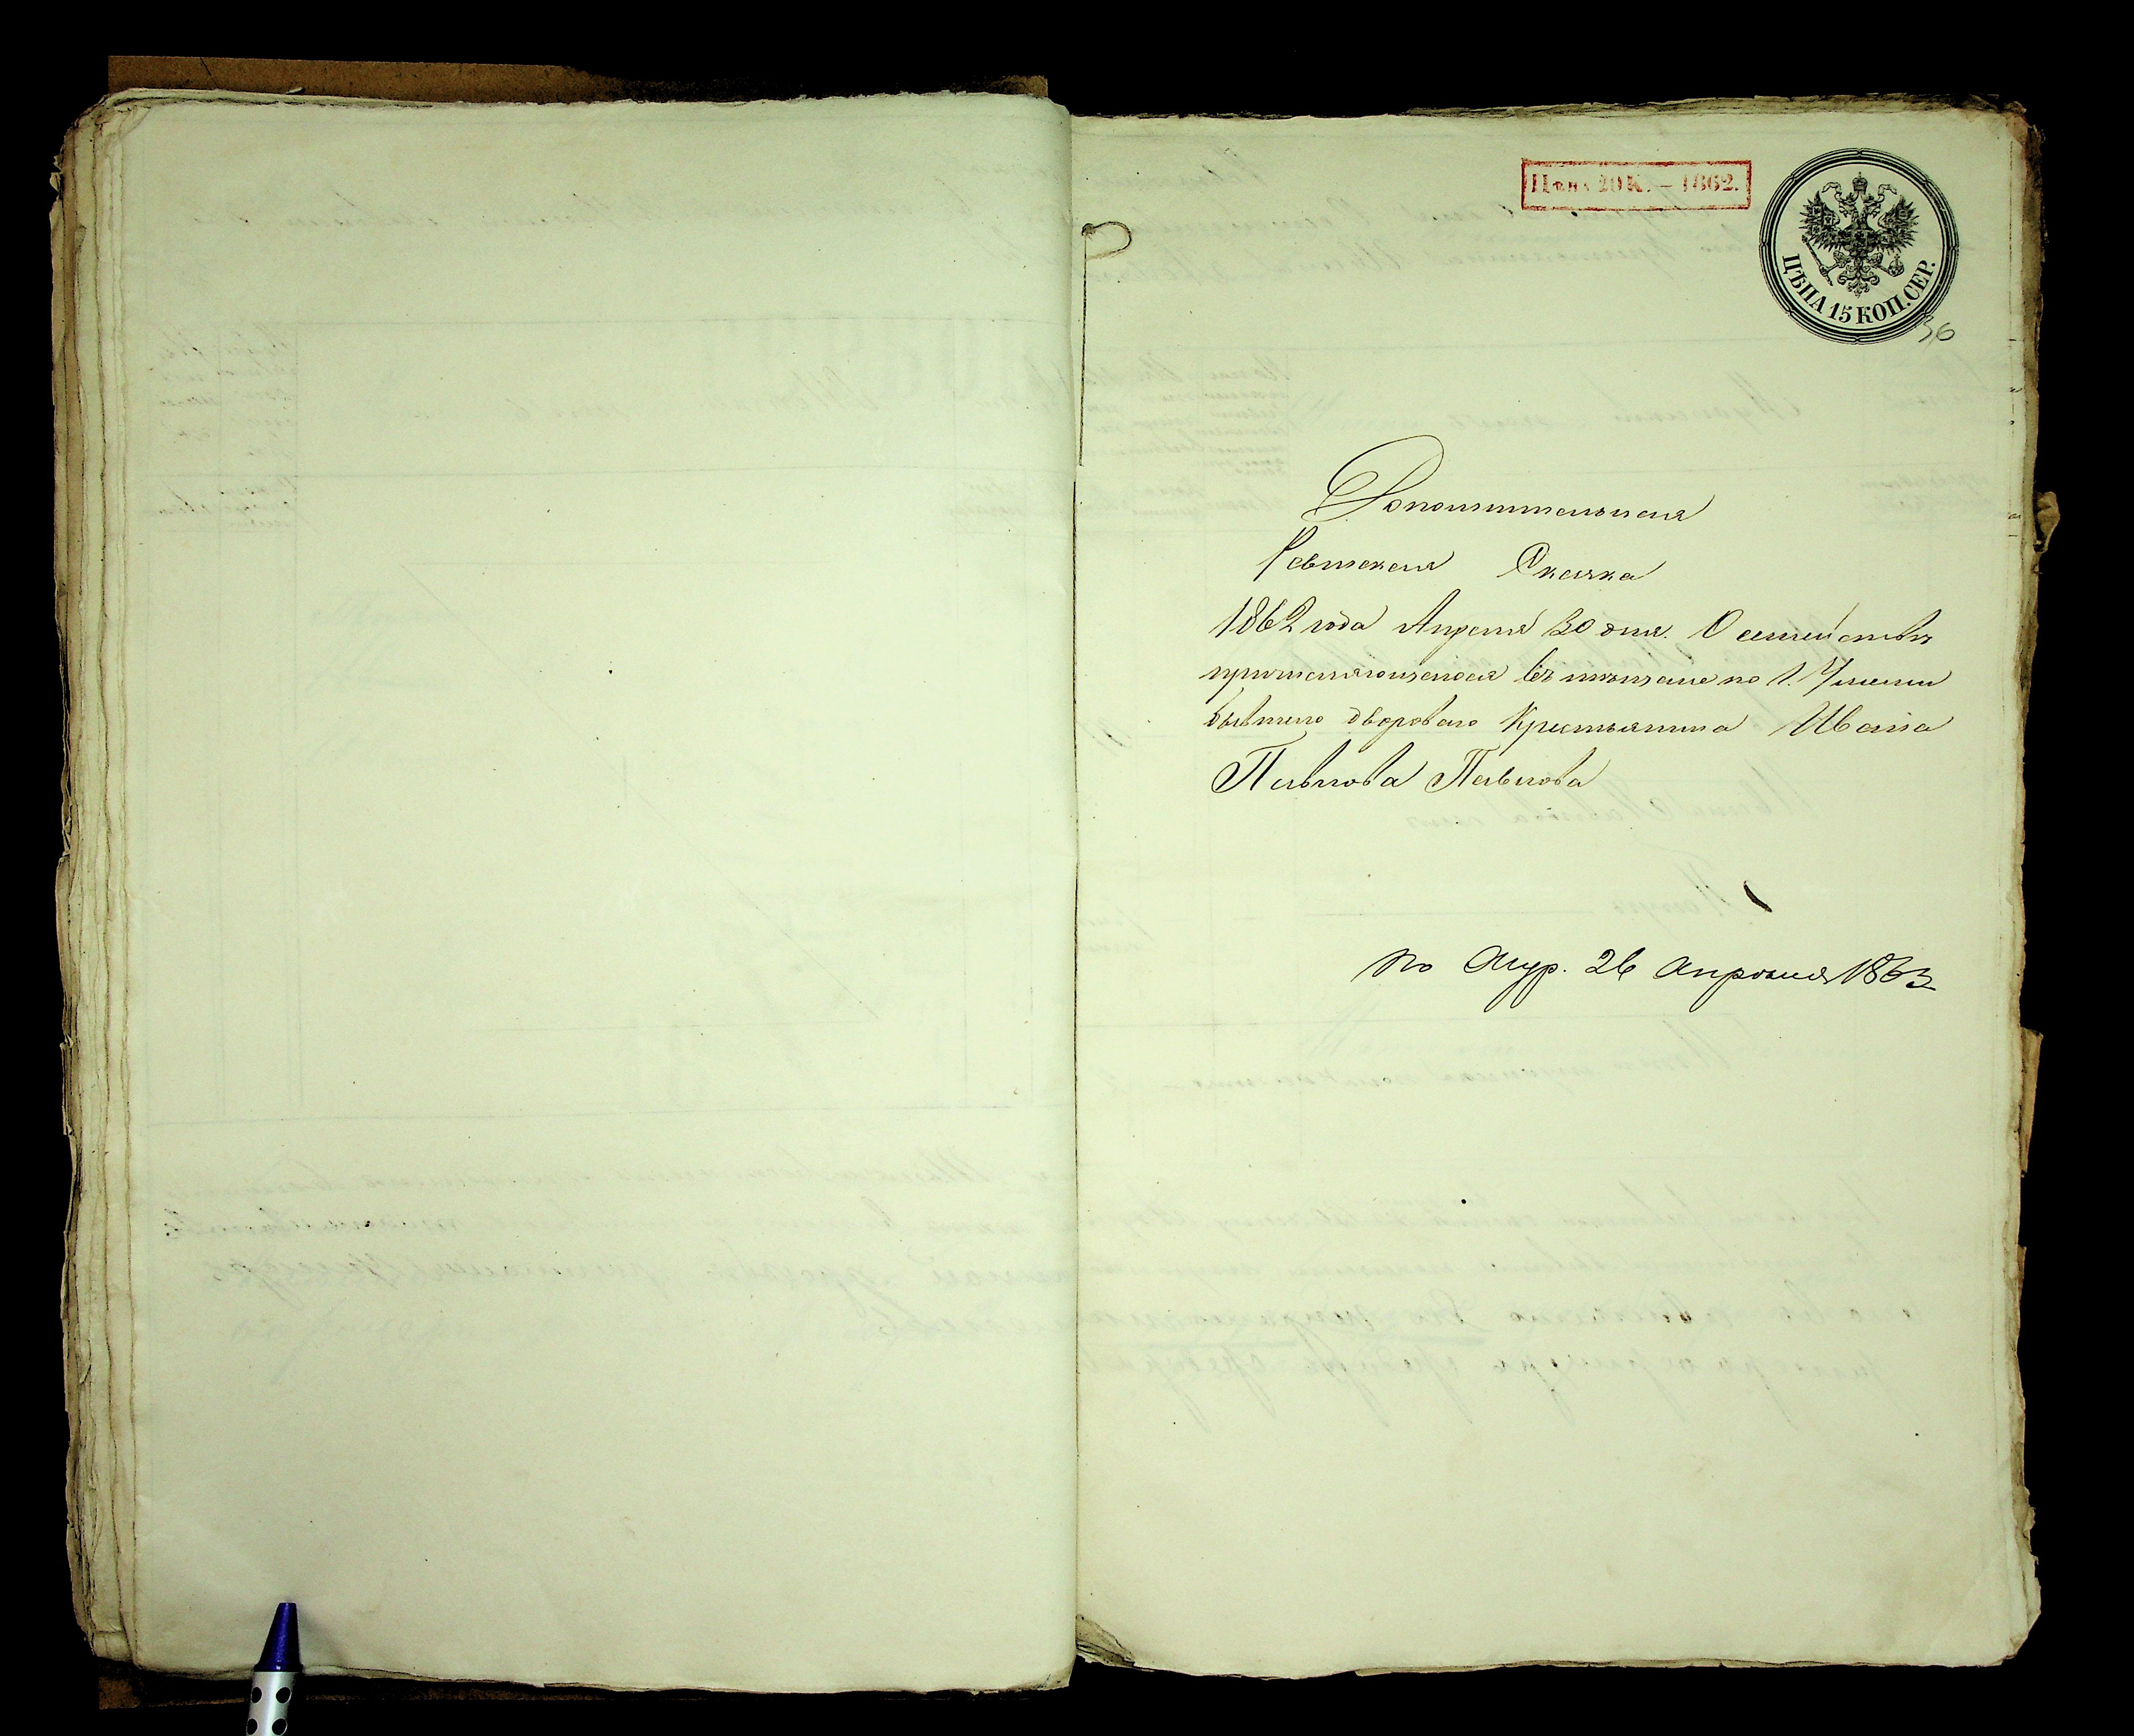 Цѣна 20 К. – 1862.
ЦѢНА 15 КОП. СЕР.
36
Дополнительная
Ревизская Сказка
1862 года Апреля 30 дня. О семействѣ
причисляющагося въ мѣщане по г.
бывшаго двороваго Крестьянина Ивана
Павлова Павлова
по жур. 26 апрѣля 1863